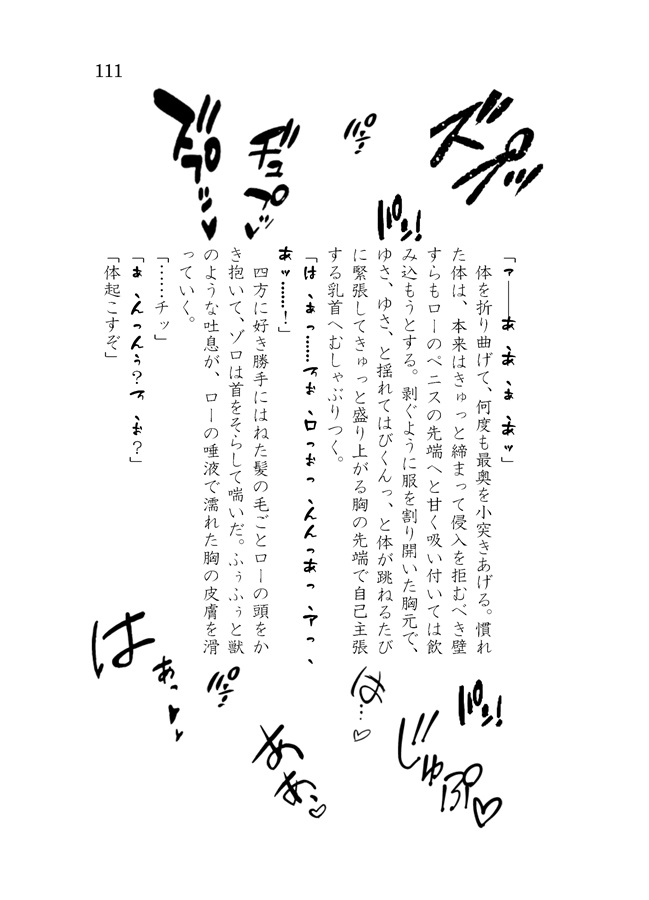 111
ズプッ
パン!
ギュプッ♥
ズプッ♥
「っ――あ、あ、あ、あッ」
体を折り曲げて、何度も最奥を小突きあげる。慣れ
た体は、本来はきゅっと締まって侵入を拒むべき壁
すらもローのペニスの先端へと甘く吸い付いては飲
み込もうとする。剥ぐように服を割り開いた胸元で、
ゆさ、ゆさ、と揺れてはびくんっ、と体が跳ねるたび
に緊張してきゅっと盛り上がる胸の先端で自己主張
する乳首へむしゃぶりつく。
あッ……!」
四方に好き勝手にはねた髪の毛ごとローの頭をか
き抱いて、ゾロは首をそらして喘いだ。ふぅふぅと獣
のような吐息が、ローの唾液で濡れた胸の皮膚を滑
っていく。
「……チッ」
「体起こすぞ」
パン!
じゅぷ♡
は…♡
ああっ♡
あっ♥♥
は